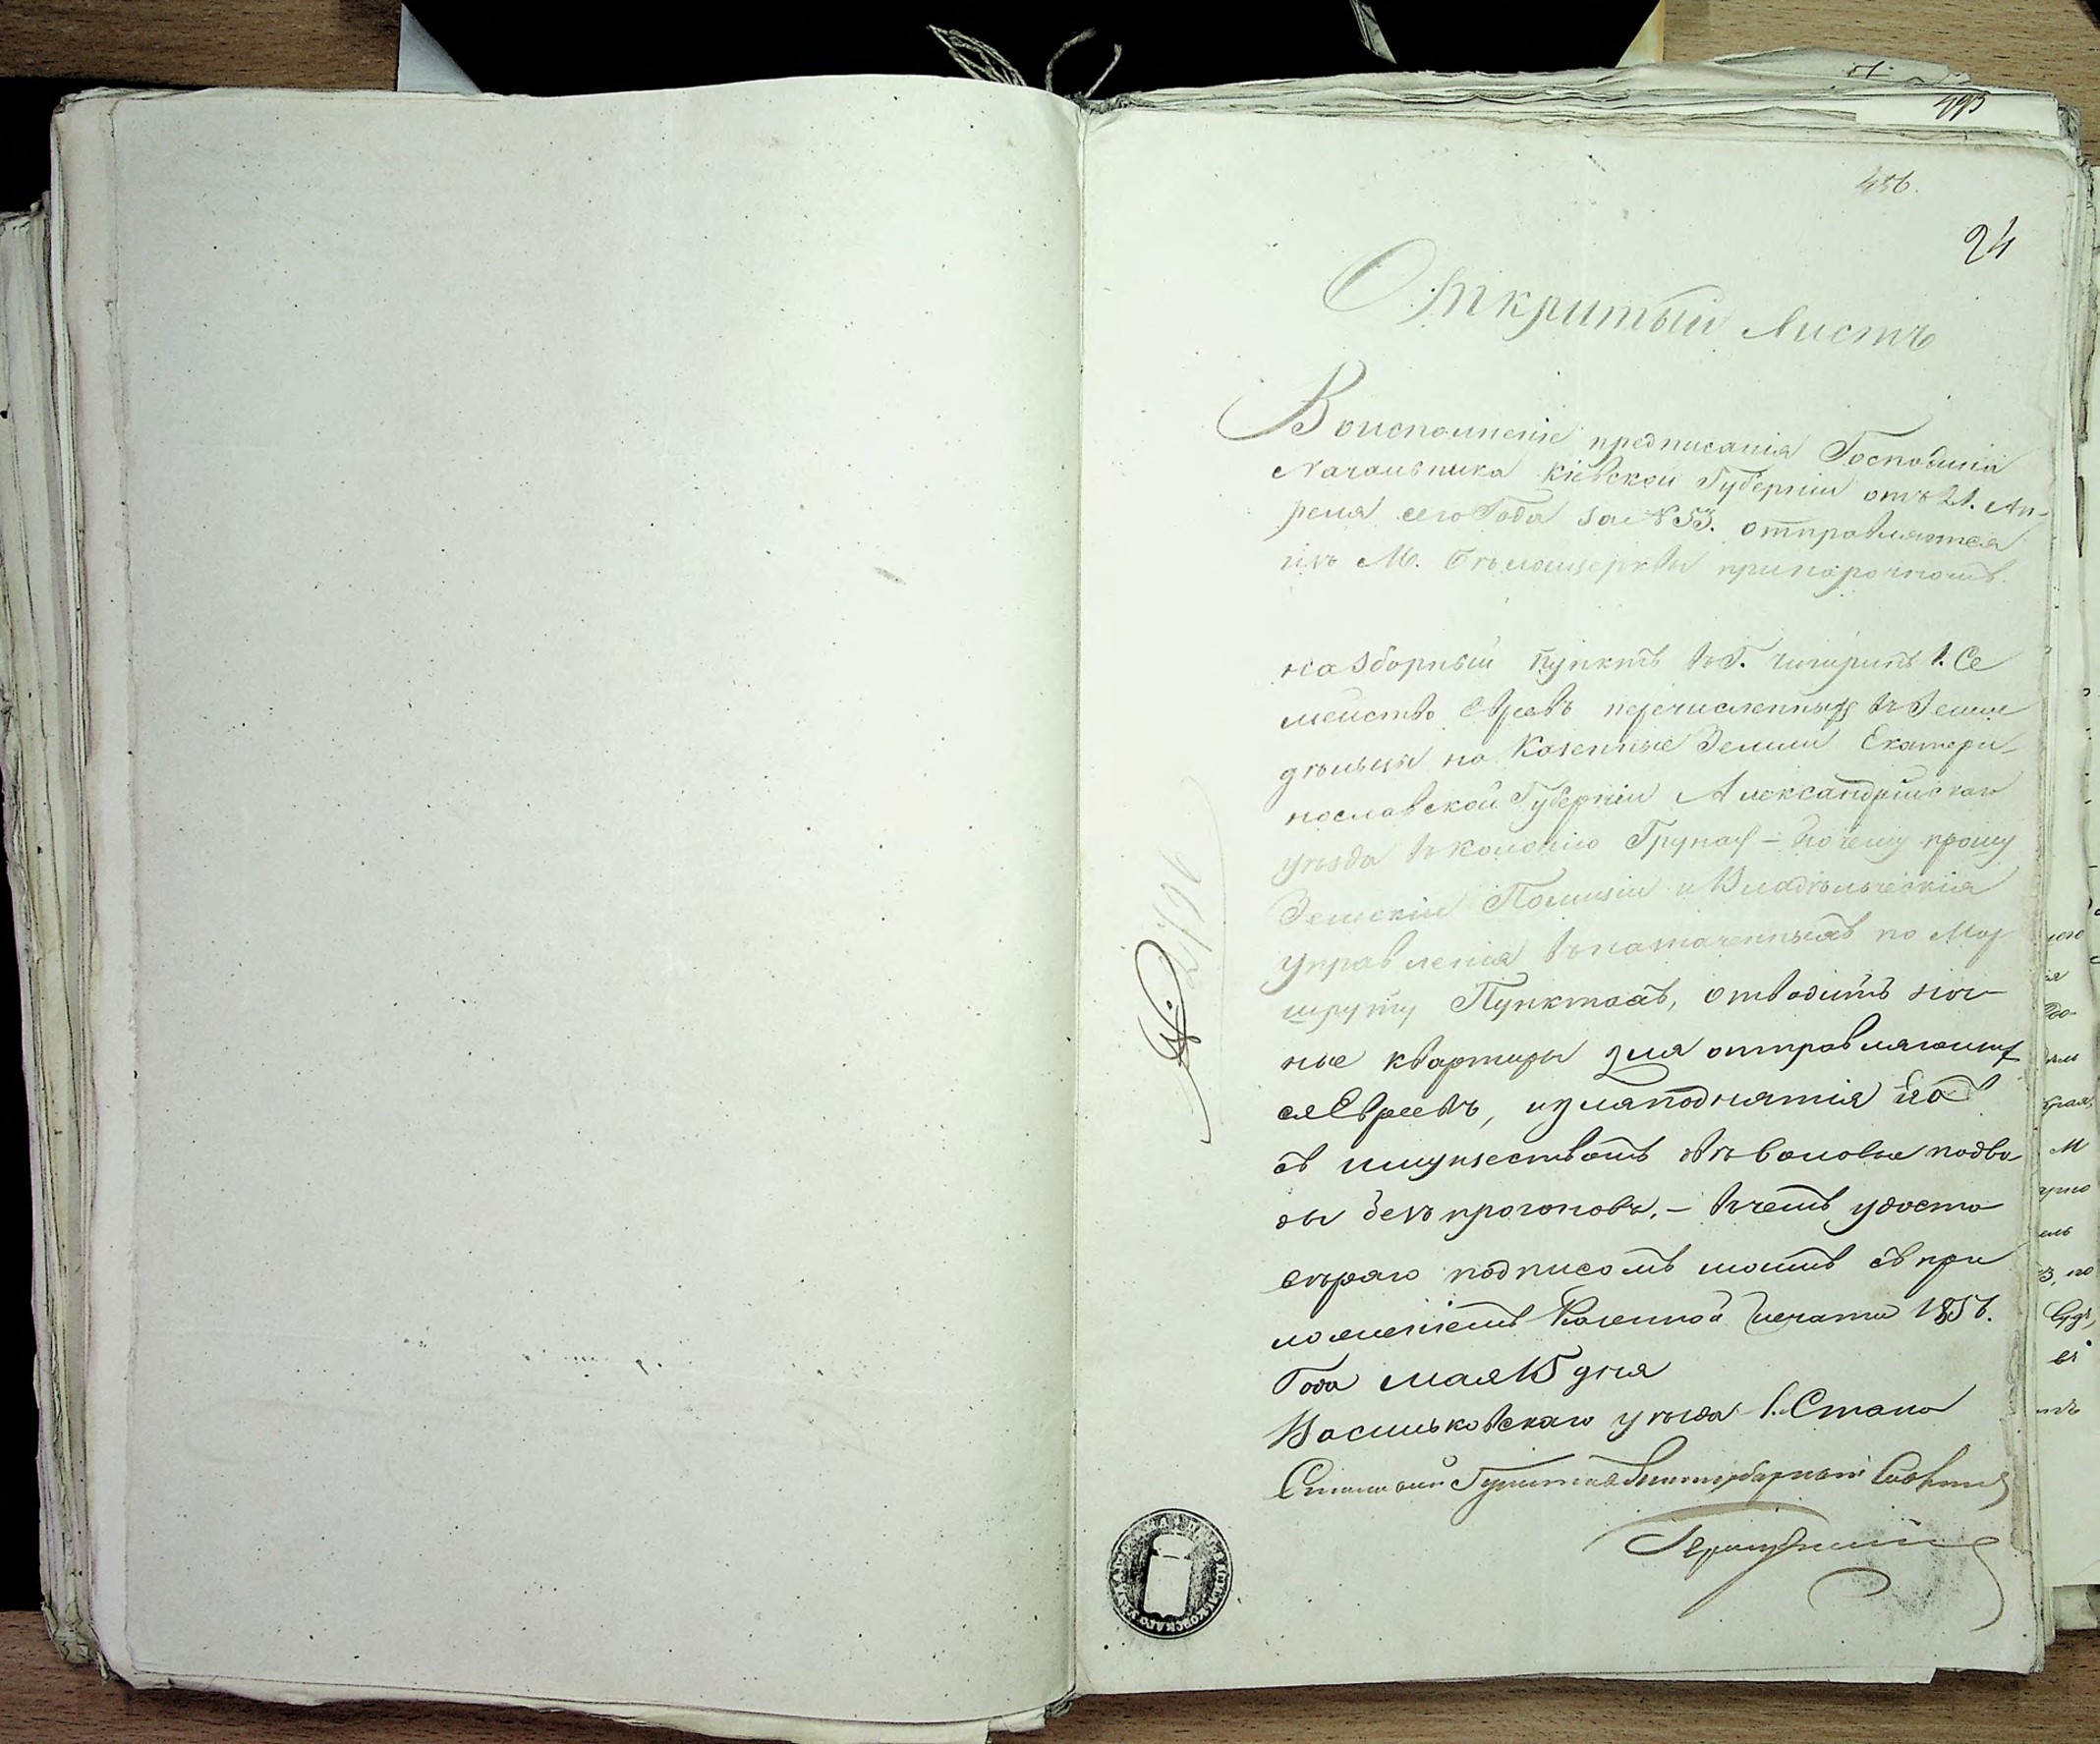 493
456.
24
Откритый листъ
Воисполненіе предписанія Господина
Начальника Кіевской Губерніи отъ 21. Ап-
реля сего Года за № 53. отправляется
изъ М. Бѣлоцеркви принарочномъ
на Зборный пунктъ въ Г. Чигиринъ 1. Се
мейство Евреевъ перечисленныхъ въ Земле
дѣльцы на Казенные Земли Екатери-
нославской Губерніи Александрійскаго
уѣзда въ колонію Грунау – почему прошу
Земскіи Полиціи и Владѣльческія
Управленія въ назначенныхъ по Мар
шруту Пунктахъ, отводить ноч-
ные квартиры для отправляющих
ся Евреевъ, и для поднятія ихъ
съ имуществомъ двѣ воловые подво
ды безъ прогоновъ. – въ чемъ удосто
вѣряю подписомъ моимъ съ при
ложеніемъ Казенной печати 1856.
Года мая 15 дня
Васильковскаго уѣзда 1. Стана
Становой Приставъ Титулярный Совѣтникъ
№